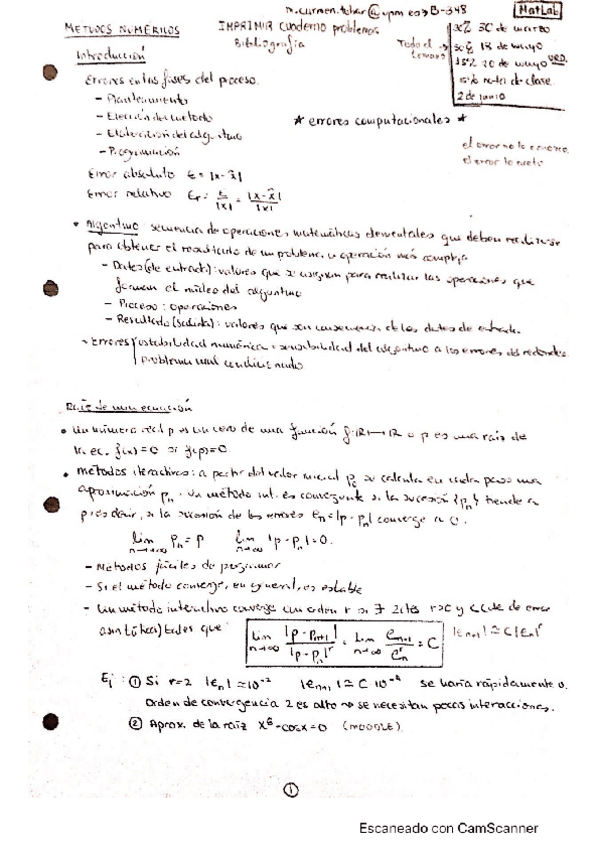 MatLab
IMPRIMIR cuaderno problemas
Bibliografía
30 de marzo
18 de mayo
20 de mayo
15% notas de clase
2 de junio
METODOS NUMÉRICOS
Introducción
Errores en las fases del proceso.
- Planteamiento
- Elección del método
- Elaboración del algoritmo
- Programación
* errores computacionales *
Error absoluto E = |x - x̃|
Error relativo Er = E/|x| = |x - x̃|/|x|
• Algoritmo: secuencia de operaciones matemáticas elementales que deben realizarse
para obtener el resultado de un problema u operación más compleja
- Datos (de entrada): valores que se asignan para realizar las operaciones que
forman el núcleo del algoritmo
- Proceso: operaciones
- Resultado (salida): valores que son consecuencia de los datos de entrada.
- Errores estabilidad numérica: sensibilidad del algoritmo a los errores del redondeo.
problema mal condicionado
Raíz de una ecuación
• Un número real p es un cero de una función f: ℝ → ℝ o p es una raíz de
la ec. f(x)=0 si f(p)=0
• métodos iterativos: a partir del valor inicial p₀ se calcula en cada paso una
aproximación pₙ. Un método int. es convergente si la sucesión {pₙ} tiende a
p es decir, si la sucesión de los errores eₙ=|p-pₙ| converge a 0.
lim n→∞ pₙ = p lim n→∞ |p-pₙ| = 0.
- Métodos fáciles de programar
- Si el método converge, en general, es estable
- Un método interactivo converge con orden r si ∃ 2 ctes r>0 y C (cte de error
asintótica) tales que lim n→∞ |p-pₙ₊₁|/|p-pₙ|ʳ = lim n→∞ eₙ₊₁/eₙʳ = C |eₙ₊₁| ≃ C|eₙ|ʳ
Ej: ① Si r=2 |eₙ| ≃ 10⁻² |eₙ₊₁| ≃ C·10⁻⁴ se haría rápidamente 0.
Orden de convergencia 2 es alto → se necesitan pocas interacciones.
② Aprox. de la raíz x⁶-cosx=0 (MOODLE).
①
Escaneado con CamScanner